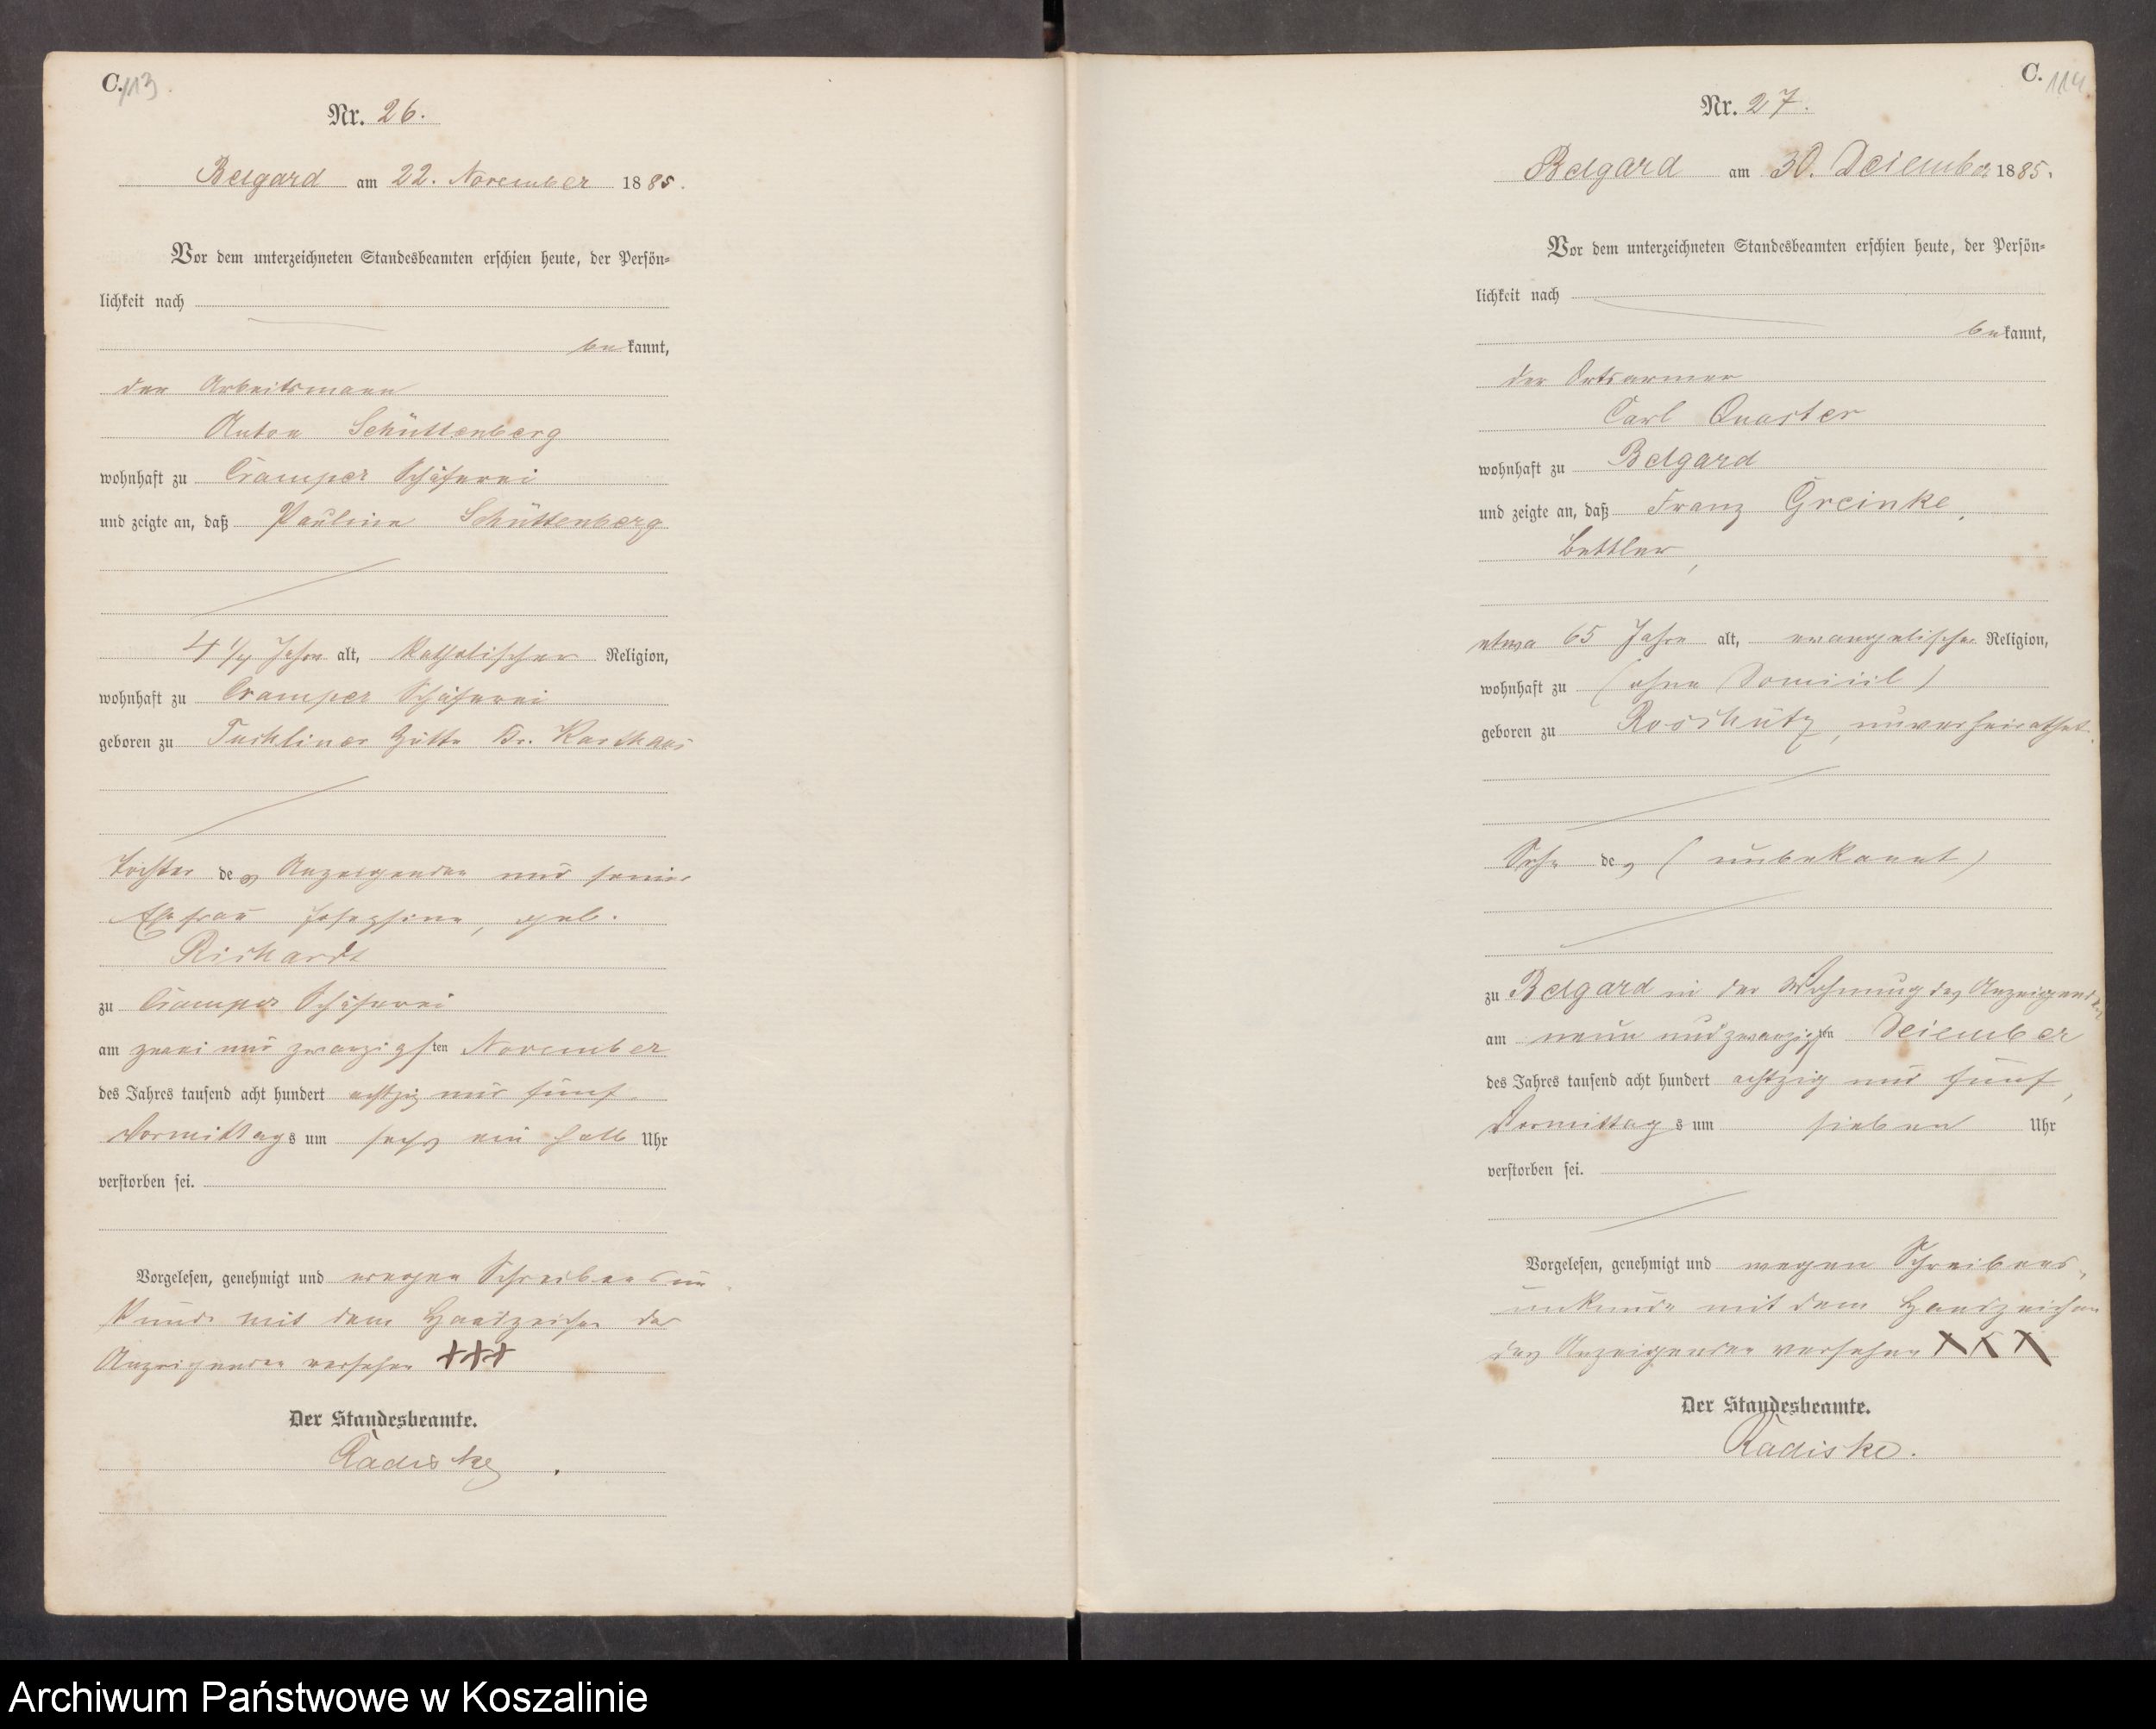 C. 113.
Nr. 26.
Belgard am 22. November 1885.
Vor dem unterzeichneten Standesbeamten erschien heute, der Persön-
lichkeit nach
bekannt,
der Arbeitsmann
Anton Schüttenberg
wohnhaft zu Cramper Schäferei
und zeigte an, daß Pauline Schüttenberg
4 1/4 Jahre alt, katholischer Religion,
wohnhaft zu Cramper Schäferei
geboren zu Tuchliner Hütte Kr. Karthaus
Tochter des Anzeigenden und seiner
Ehefrau Josephine, geb.
Richardt
zu Cramper Schäferei
am zwei und zwanzigsten November
des Jahres tausend acht hundert achtzig und fünf
Vormittags um sechs ein halb Uhr
verstorben sei.
Vorgelesen, genehmigt und wegen Schreibensun
kunde mit dem Handzeichen des
Anzeigenden versehen +++
Der Standesbeamte.
Radiske.
C. 114
Nr. 27.
Belgard am 30. Dezember 1885.
Vor dem unterzeichneten Standesbeamten erschien heute, der Persön-
lichkeit nach
bekannt,
der Ortsarmer
Carl Quaster
wohnhaft zu Belgard
und zeigte an, daß Franz Greinke,
Bettler,
etwa 65 Jahre alt, evangelischer Religion,
wohnhaft zu (ohne Domicil)
geboren zu Roschütz, unverheirathet.
Sohn des (unbekannt)
zu Belgard in der Wohnung des Anzeigenden
am neun und zwanzigsten Dezember
des Jahres tausend acht hundert achtzig und fünf,
Vormittags um sieben Uhr
verstorben sei.
Vorgelesen, genehmigt und wegen Schreibens-
unkunde mit dem Handzeichen
des Anzeigenden versehen XXX
Der Standesbeamte.
Radiske.
Archiwum Państwowe w Koszalinie